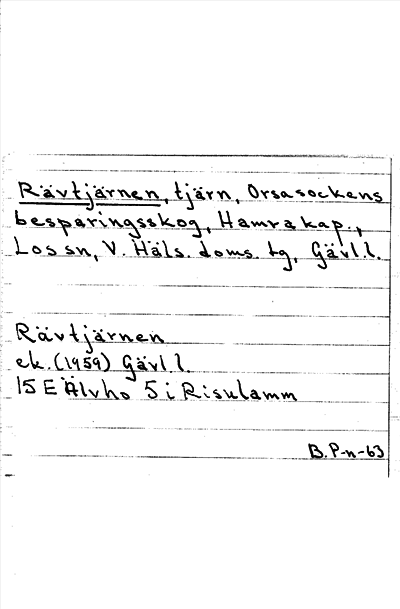 Rävtjärnen, tjärn, Orsasockens
besparingsskog, Hamra kap.,
Los sn, V. Häls. doms. tg, Gävl.l.
Rävtjärnen
ek. (1959) Gävl l.
15 E Älvho 5 i Risulamm
B. P-n-63